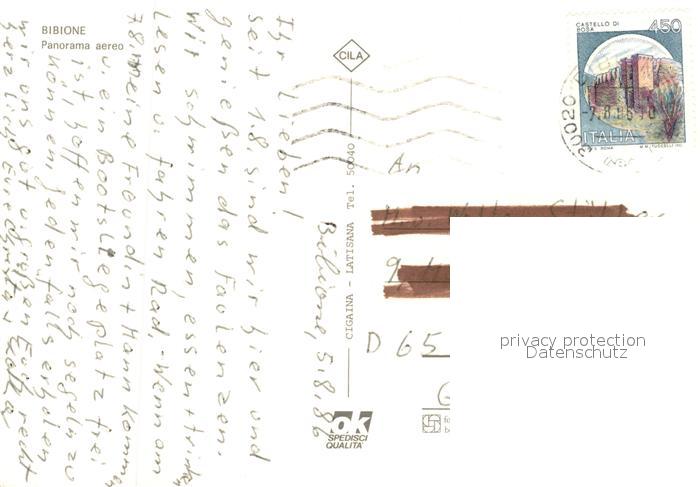 BIBIONE
Panorama aereo
CILA
CASTELLO DI
ROSA
450
ITALIA
30020
An
D 65
CIGAINA - LATISANA Tel. 50040
ok
SPEDISCI
QUALITA'
privacy protection
Datenschutz
Bibione, 5.8.86
Ihr Lieben!
seit 1.8. sind wir hier und
genießen das Faulenzen.
Wir schwimmen, essen + trinken
Lesen u. fahren Rad. - Wenn am
7.8. meine Freundin + Mann kommen
u. ein Bootsliegeplatz frei
ist, hoffen wir noch segeln zu
können, jedenfalls erholen
wir uns gut u. grüßen Euch recht
herzlich Eure